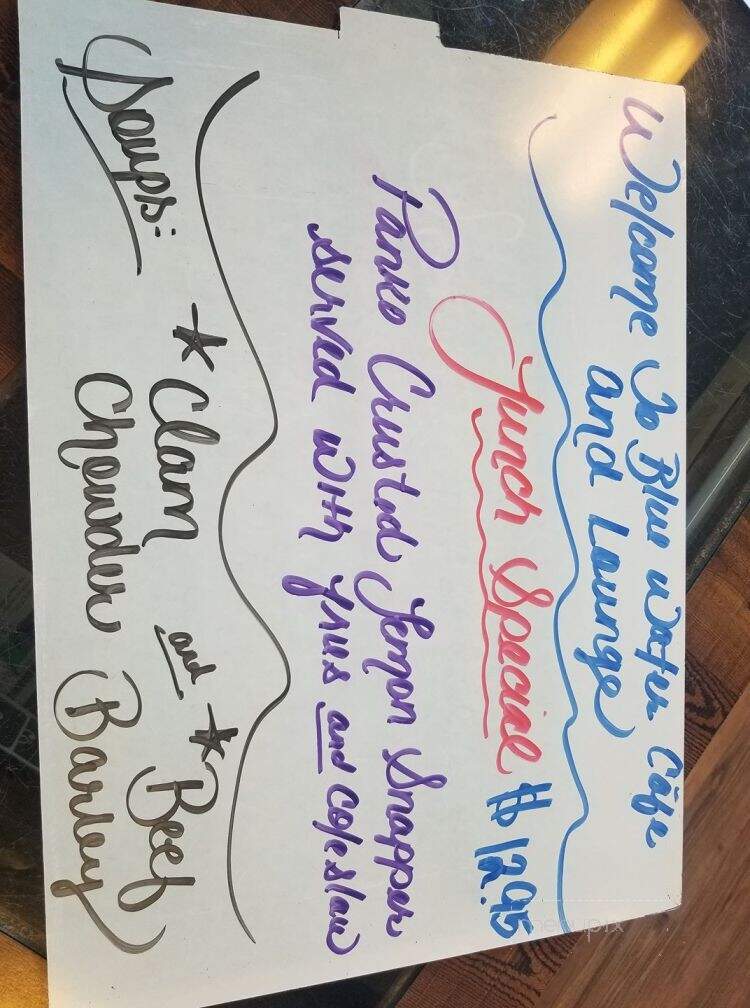 Welcome To Blue Water Cafe
and Lounge
Lunch Special $12.95
Panko Crusted Lemon Snapper
served with fries and Coleslaw
Soups:
* Clam Chowder and * Beef Barley
menupix